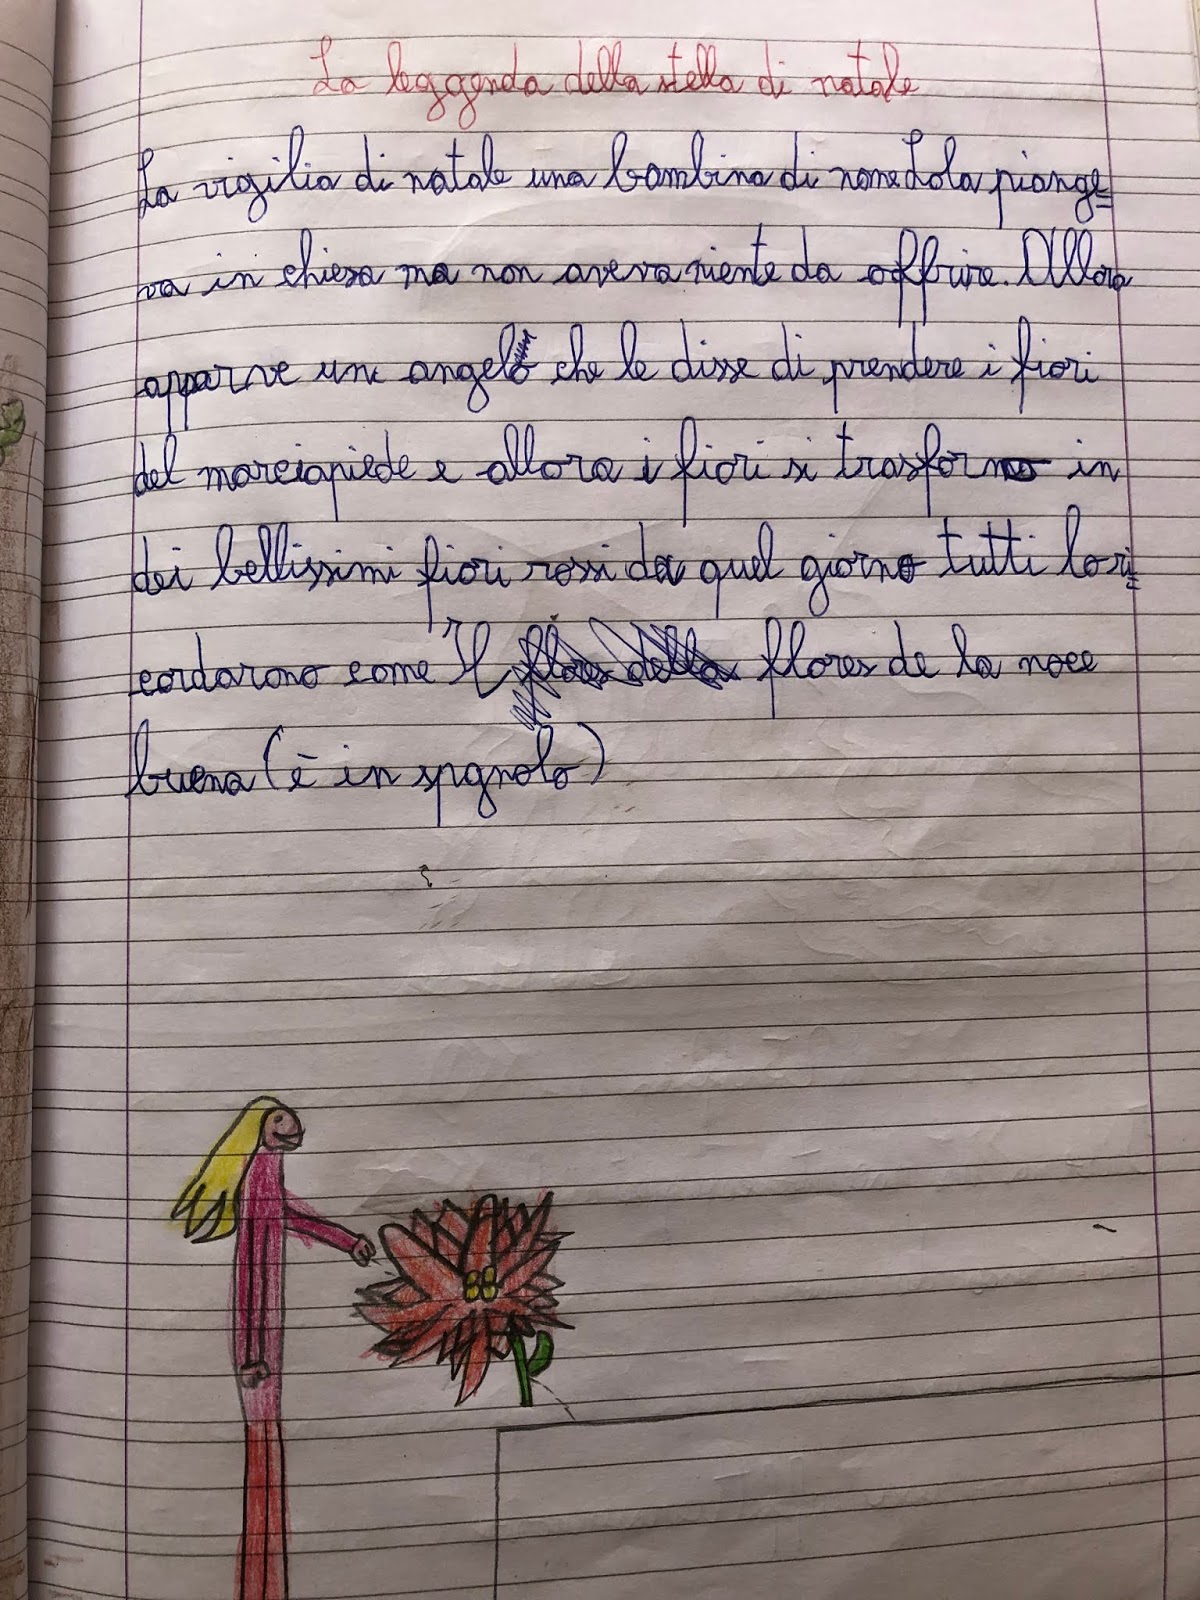 La leggenda della stella di natale
La vigilia di natale una bambina di nome Lola piange=
va in chiesa ma non aveva niente da offrire. Allora
apparve un angelo che le disse di prendere i fiori
del marciapiede e allora i fiori si trasformo in
dei bellissimi fiori rossi da quel giorno tutti lo ri=
cordarono come Il flores della flores de la noce
buena (è in spgnolo)